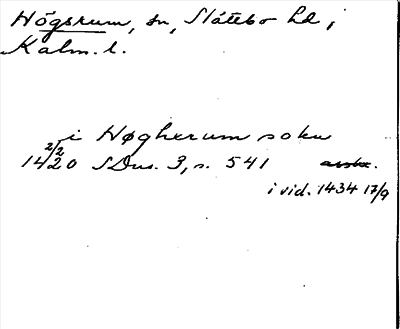 Högsrum, sn, Slättbo hd,
Kalm. l.
i Høgherum soku
1420 2/2 SDns. 3, s. 541 avskr.
i vid. 1434 17/9